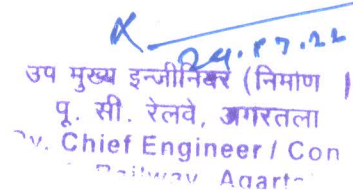 24.07.22
उप मुख्य इन्जीनियर (निर्माण
पू. सी. रेलवे, अगरतला
Dy. Chief Engineer / Con
Railway, Agart